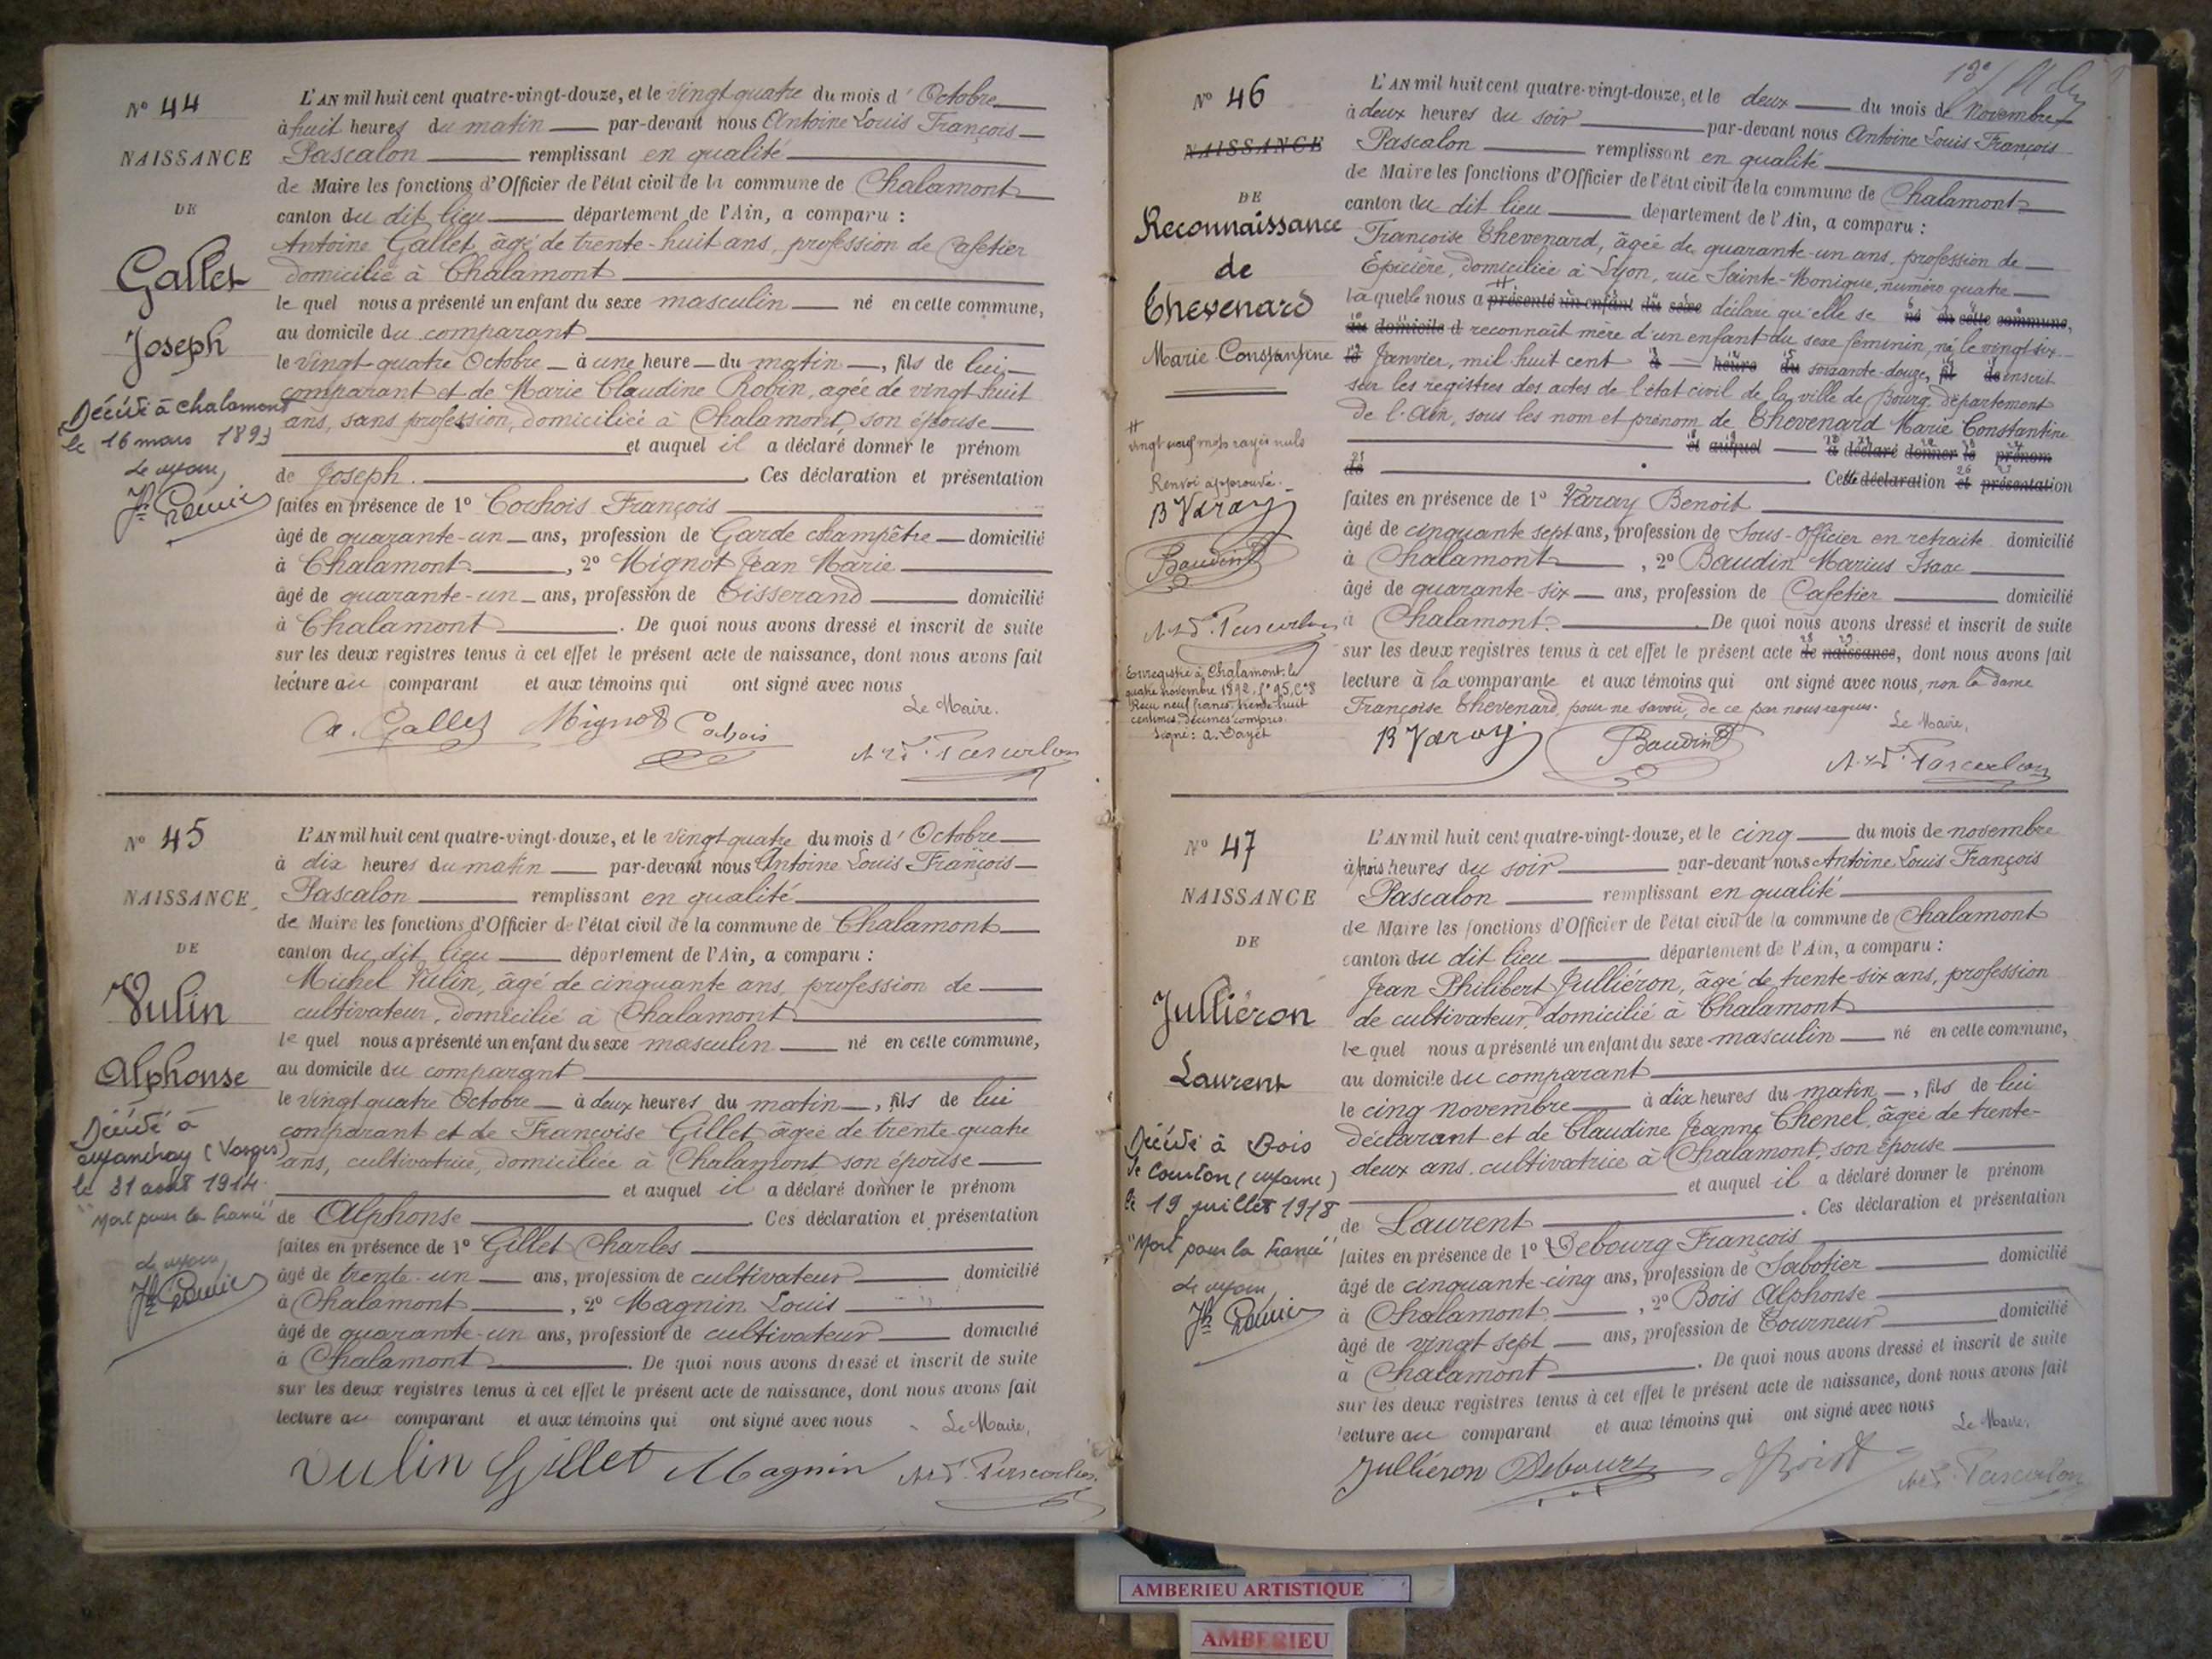 N° 44
NAISSANCE
DE
Gallet
Joseph
Décédé à Chalamont
le 16 mars 1893
L'AN mil huit cent quatre-vingt-douze, et le vingt quatre du mois d'Octobre
à huit heures du matin par-devant nous Antoine Louis François
Pascalon remplissant en qualité
de Maire les fonctions d'Officier de l'état civil de la commune de Chalamont
canton du dit lieu département de l'Ain, a comparu :
Antoine Gallet, âgé de trente-huit ans, profession de Cafetier
domicilié à Chalamont
le quel nous a présenté un enfant du sexe masculin né en cette commune,
au domicile du comparant
le vingt-quatre Octobre à une heure du matin, fils de lui
comparant et de Marie Claudine Robin, agée de vingt huit
ans, sans profession, domiciliée à Chalamont, son épouse
et auquel il a déclaré donner le prénom
de Joseph. Ces déclaration et présentation
faites en présence de 1° Cochois François
âgé de quarante-un ans, profession de Garde champêtre domicilié
à Chalamont, 2° Mignot Jean Marie
âgé de quarante-un ans, profession de Tisserand domicilié
à Chalamont. De quoi nous avons dressé et inscrit de suite
sur les deux registres tenus à cet effet le présent acte de naissance, dont nous avons fait
lecture au comparant et aux témoins qui ont signé avec nous
Le Maire.
a. Gallet Mignot Cochois
N° 45
NAISSANCE
DE
Vulin
Alphonse
Décédé à
Mandray (Vosges)
le 31 août 1914
"Mort pour la France"
L'AN mil huit cent quatre-vingt-douze, et le vingt quatre du mois d'Octobre
à dix heures du matin par-devant nous Antoine Louis François
Pascalon remplissant en qualité
de Maire les fonctions d'Officier de l'état civil de la commune de Chalamont
canton du dit lieu département de l'Ain, a comparu :
Michel Vulin, âgé de cinquante ans, profession de
cultivateur, domicilié à Chalamont
le quel nous a présenté un enfant du sexe masculin né en cette commune,
au domicile du comparant
le vingt quatre Octobre à deux heures du matin, fils de lui
comparant et de Françoise Gillet âgée de trente quatre
ans, cultivatrice, domiciliée à Chalamont son épouse
et auquel il a déclaré donner le prénom
de Alphonse. Ces déclaration et présentation
faites en présence de 1° Gillet Charles
âgé de trente-un ans, profession de cultivateur domicilié
à Chalamont, 2° Magnin Louis
âgé de quarante-un ans, profession de cultivateur domicilié
à Chalamont. De quoi nous avons dressé et inscrit de suite
sur les deux registres tenus à cet effet le présent acte de naissance, dont nous avons fait
lecture au comparant et aux témoins qui ont signé avec nous
Le Maire,
Vulin Gillet Magnin
N° 46
NAISSANCE
DE
Reconnaissance
de
Thevenard
Marie Constantine
vingt neuf mots rayés nuls
Renvoi approuvé.
B Varay
Baudin
Enregistré à Chalamont le
quatre novembre 1892, f° 95, C° 8
Reçu neuf francs, trente-huit
centimes, décimes compris.
Signé: a. Dayet
L'AN mil huit cent quatre-vingt-douze, et le deux du mois de Novembre
à deux heures du soir par-devant nous Antoine Louis François
Pascalon remplissant en qualité
de Maire les fonctions d'Officier de l'état civil de la commune de Chalamont
canton du dit lieu département de l'Ain, a comparu :
Françoise Thevenard, âgée de quarante-un ans, profession de
Epicière, domiciliée à Lyon, rue Sainte-Monique, numéro quatre
la quelle nous a présenté un enfant du sexe déclare qu'elle se né en cette commune,
au domicile d reconnaît mère d'un enfant du sexe féminin, né le vingt six
le Janvier, mil huit cent à heure du soixante-douze, fil de inscrit
sur les registres des actes de l'état civil de la ville de Bourg, département
de l'Ain, sous les nom et prénom de Thevenard Marie Constantine
et auquel a déclaré donner le prénom
de Cette déclaration et présentation
faites en présence de 1° Varay Benoit
âgé de cinquante sept ans, profession de Sous-Officier en retraite domicilié
à Chalamont, 2° Baudin Marius Isaac
âgé de quarante-six ans, profession de Cafetier domicilié
à Chalamont. De quoi nous avons dressé et inscrit de suite
sur les deux registres tenus à cet effet le présent acte de naissance, dont nous avons fait
lecture à la comparante et aux témoins qui ont signé avec nous, non la dame
Françoise Thevenard, pour ne savoir, de ce par nous requis.
Le Maire,
B Varay Baudin
N° 47
NAISSANCE
DE
Julliéron
Laurent
Décédé à Bois
de Courton (Marne)
le 19 juillet 1918
"Mort pour la France"
L'AN mil huit cent quatre-vingt-douze, et le cinq du mois de novembre
à trois heures du soir par-devant nous Antoine Louis François
Pascalon remplissant en qualité
de Maire les fonctions d'Officier de l'état civil de la commune de Chalamont
canton du dit lieu département de l'Ain, a comparu :
Jean Philibert Julliéron, âgé de trente-six ans, profession
de cultivateur, domicilié à Chalamont
le quel nous a présenté un enfant du sexe masculin né en cette commune,
au domicile du comparant
le cinq novembre à dix heures du matin, fils de lui
déclarant et de Claudine Jeanne Chenel, âgée de trente-
deux ans, cultivatrice à Chalamont, son épouse
et auquel il a déclaré donner le prénom
de Laurent. Ces déclaration et présentation
faites en présence de 1° Debourg François
âgé de cinquante-cinq ans, profession de Sabotier domicilié
à Chalamont, 2° Bois Alphonse
âgé de vingt sept ans, profession de Tourneur domicilié
à Chalamont. De quoi nous avons dressé et inscrit de suite
sur les deux registres tenus à cet effet le présent acte de naissance, dont nous avons fait
lecture au comparant et aux témoins qui ont signé avec nous
Le Maire,
Julliéron Debourg
AMBERIEU ARTISTIQUE
AMBERIEU